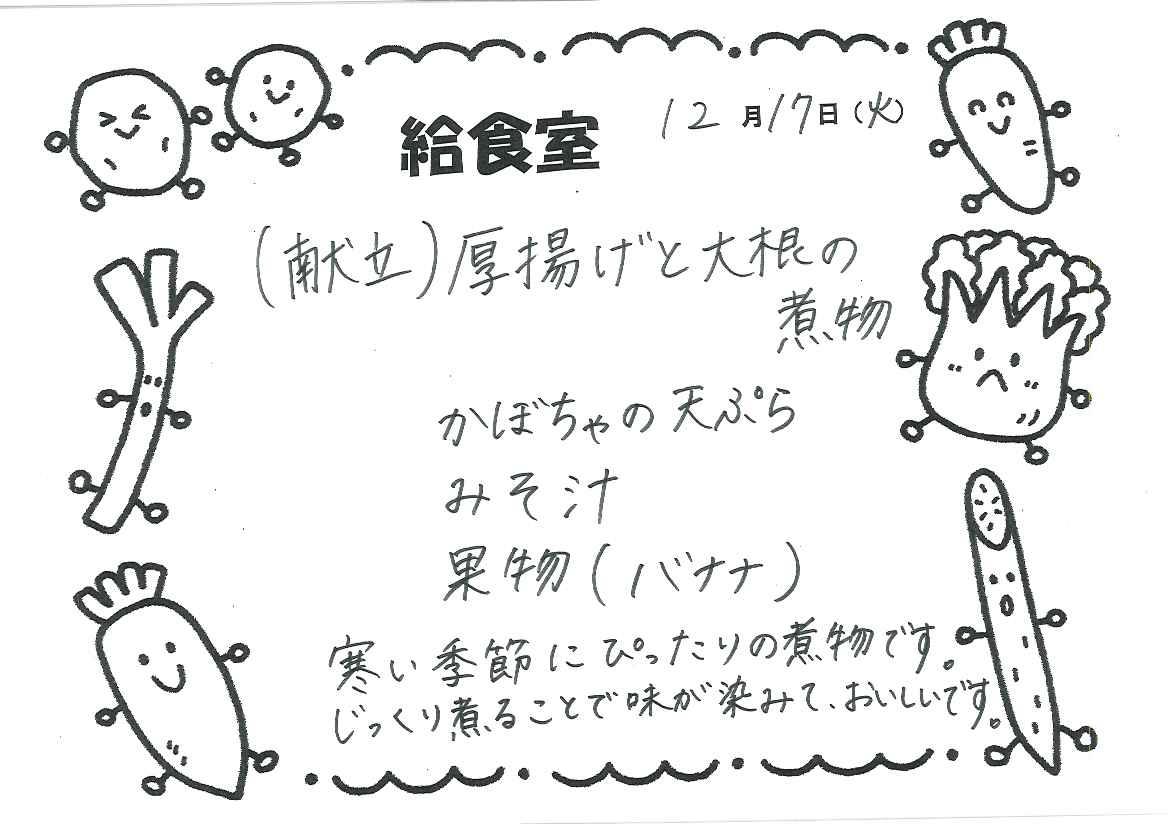 給食室 12月17日(火)
(献立)厚揚げと大根の
煮物
かぼちゃの天ぷら
みそ汁
果物(バナナ)
寒い季節にぴったりの煮物です。
じっくり煮ることで味が染みて、おいしいです。